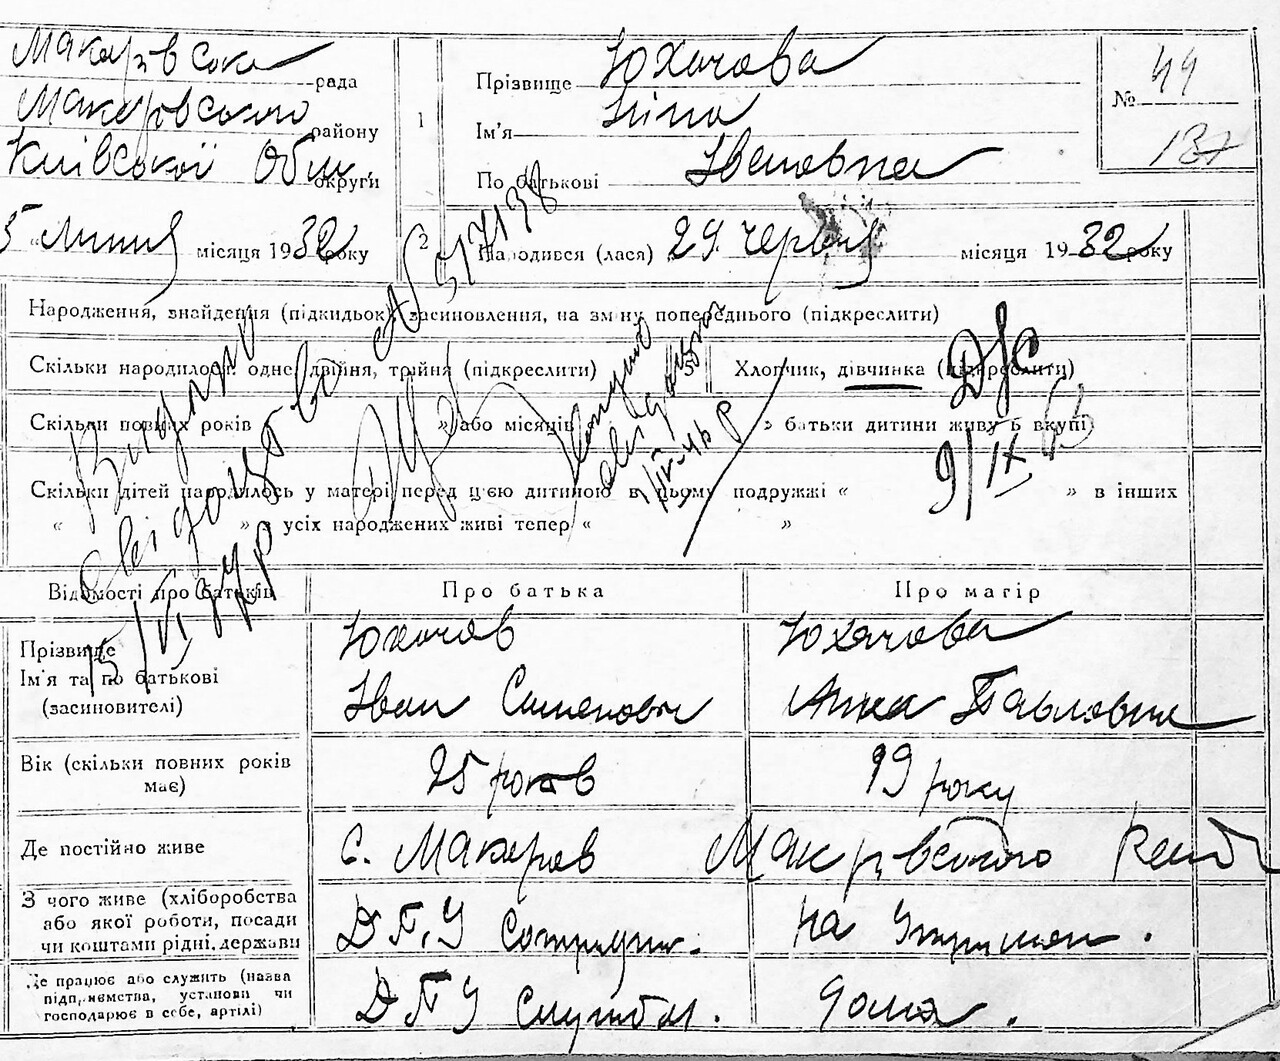 Макарівська рада
Макарівського району
Київської Обл. округи
1
Прізвище Юхачова
Ім'я Ніна
По батькові Івановна
№ 44
137
5 "липня місяця 1932 року
2 Народився (лася) 29 червня місяця 1932 року
Народження, знайдення (підкидьок) засиновлення, на зміну попереднього (підкреслити)
Скільки народилося: одне, двійня, трійня (підкреслити)
Хлопчик, дівчинка (підкреслити)
Скільки повних років » або місяців « » батьки дитини живуть вкупі
Скільки дітей народилось у матері перед цією дитиною в цьому подружжі « » в інших
« » з усіх народжених живі тепер « »
Видано
свідоцтво № 517138
9/IX
Відомості про батьків
Про батька
Про матір
Прізвище
Ім'я та по батькові
(засиновителі)
Юхачов
Іван Семенович
Юхачова
Анна Павловна
Вік (скільки повних років має)
25 років
19 року
Де постійно живе
с. Макаров Макарівського
З чого живе (хліборобства
або якої роботи, посади
чи коштами рідні, держави
Д.П.У сотрудн.
на утриман.
Де працює або служить (назва
підприємства, установи чи
господарює в себе, артілі)
ДПУ службов.
дома.